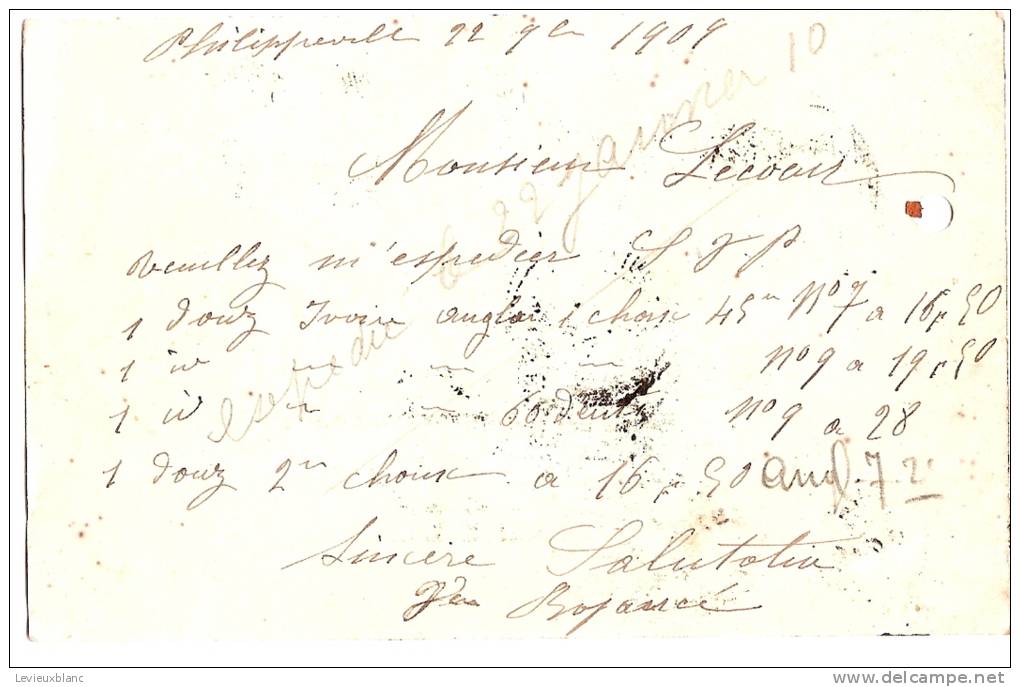 Philippeville 22 9bre 1909
Monsieur Lecoeur
veuillez m'expedier S V P
1 douz Ivoire anglai 1 choix 45 No 7 a 16 f 50
1 id — — — No 9 a 19 f 50
1 id — — 60 dents No 9 a 28
1 douz 2m choix a 16 f 50 Angl. 7. 2
expedié le 22 Janvier 10
Sincère Salutation
Vve
Levieuxblanc
www.delcampe.net